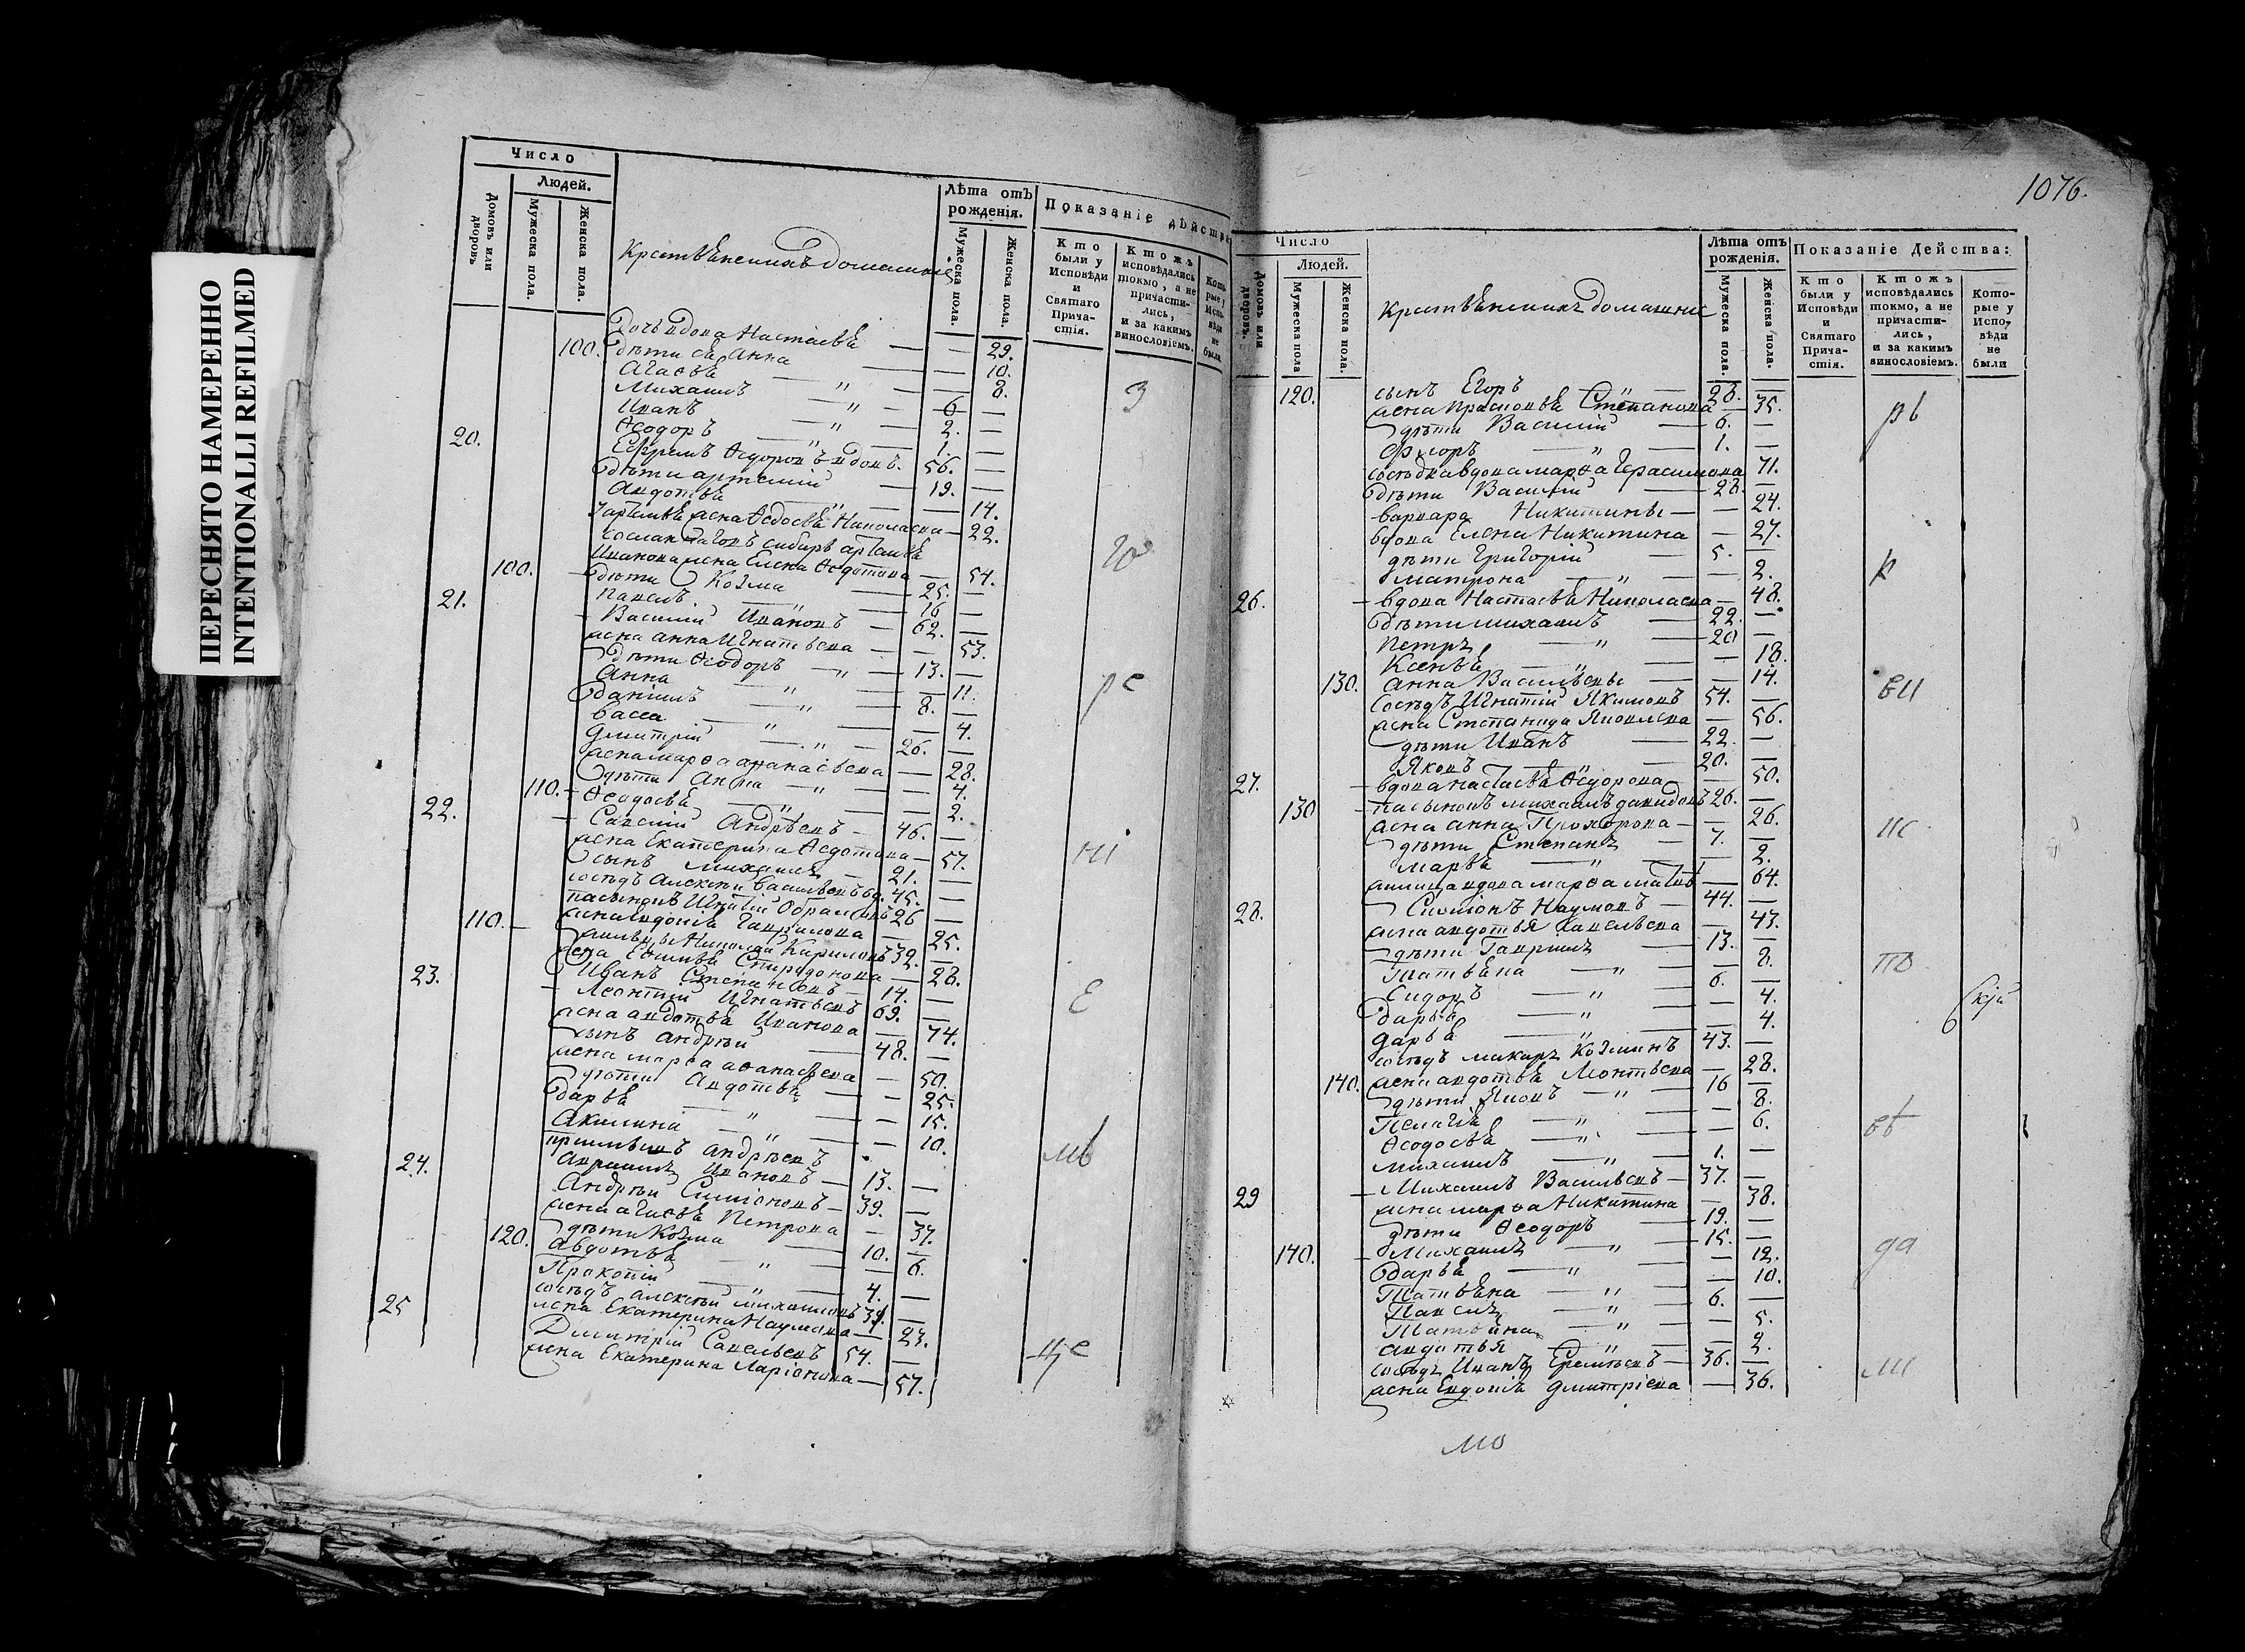 ПЕРЕСНЯТО НАМЕРЕННО
INTENTIONALLI REFILMED
Число
Людей.
Домовъ или дворовъ
Мужеска пола.
Женска пола.
Лѣта отъ рожденія.
Мужеска пола.
Женска пола.
Показаніе дѣйства
Кто были у Исповѣди и Святаго Причастія.
Ктожъ исповѣдались токмо, а не причастились, и за какимъ винословіемъ.
Которые у Исповѣди не были
Дочь вдова Настасья — — 29.
100. дѣти еѣ Анна — — 10.
Агафья — — 8.
Михаилъ — " — 6 —
Иванъ — " — 2. —
Ѳеодоръ — " — 1. —
20. Ефремъ Ѳедоровъ вдовъ. 56. —
дѣти Артемій — 19. —
Авдотья — " — — 14.
жена Ѳедосья Николаева — 22.
Иванова жена Елена Ѳедотова — 54.
100. дѣти Козма — 25. —
Павелъ — " — 16 —
21. Василій Ивановъ — 62. —
жена Анна Игнатьева — — 53.
дѣти Ѳеодоръ — " — 13. —
Анна — " — — 11.
Даніилъ — " — 8. —
Васса — " — — 4.
Дмитрій — " — 26. —
жена Марѳа Афанасьева — 28.
дѣти Анна — " — — 4.
110. Ѳеодосья — " — — 2.
22. Савелій Андрѣевъ — 46. —
жена Екатерина Ѳедотова — 57.
сынъ Михаилъ — 21. —
сосѣдъ Алексѣй Васильевъ вд. 45. —
пасынокъ Игнатій 26 —
110. жена Гаврилова — 25.
Николай Кириловъ 32. —
жена Спиридонова — 28.
Иванъ Степановъ — 14. —
23. Леонтій Игнатьевъ 69. —
жена Авдотья Иванова — 74.
сынъ Андрѣй — 48. —
жена Марѳа Аѳанасьева — 50.
дѣти Авдотья — — 25.
Дарья — " — — 15.
Акилина — " — — 10.
Андрѣевъ
Ивановъ — 13. —
24. Андрѣй Симіоновъ — 39. —
жена Агафья Петрова — 37.
дѣти Козма — 10. —
120. Авдотья — " — — 6.
Прокопій — " — 4. —
сосѣдъ Алексѣй Михаиловъ 39. —
жена Екатерина Наумова — 23.
25 Дмитрій Савельевъ 54. —
жена Екатерина Ларіонова — 57.
1076.
Число
Людей.
Домовъ или дворовъ.
Мужеска пола
Женска пола.
Лѣта отъ рожденія.
Мужеска пола.
Женска пола.
Показаніе Действа:
Кто были у Исповѣди и Святаго Причастія.
Ктожъ исповѣдались токмо, а не причастились, и за какимъ винословіемъ.
Которые у Исповѣди не были
120. сынъ Егоръ — " — 28. —
жена Прасковья Степанова — 35.
дѣти Василій — 6. —
Флоръ — " — 1. —
сосѣдка вдова Марѳа Герасимова 71.
дѣти Василій — 28. —
Варвара Никитины — — 24.
вдова Елена Никитина — 27.
дѣти Григорій — 5. —
Матрона — " — — 2.
26. вдова Настасья Николаева — 48.
дѣти Михаилъ — 22. —
Петръ — " — 20 —
Ксенья — " — — 18.
130. Анна Васильевы — — 14.
сосѣдъ Игнатій Якимовъ 54. —
жена Степанида Яковлева — 56.
дѣти Иванъ — 22. —
Яковъ — " — 20. —
27. вдова Настасья Ѳедорова — 50.
130 пасынокъ Михаилъ Давидовъ 26. —
жена Анна Прохорова — — 26.
дѣти Степанъ — 7. —
Марья — " — — 2.
вдова Марѳа — 64.
28. Симіонъ Наумовъ — 44. —
жена Авдотья Савельева — 43.
дѣти Гавріилъ — 13. —
Татьяна — " — — 8.
Сидоръ — " — 6. —
Дарья — " — — 4.
Дарья — " — — 4.
сосѣдъ Макаръ Козминъ 43. —
140. жена Авдотья Леонтьева — 28.
дѣти Яковъ — " — 16 —
Пелагія — " — — 8.
Ѳеодосья — " — — 6.
Михаилъ — " — 1. —
29 Михаилъ Васильевъ — 37. —
жена Марѳа Никитина — 38.
дѣти Ѳеодоръ — 19. —
140. Михаилъ — " — 15. —
Дарья — " — — 12.
Татьяна — " — — 10.
Павелъ — " — 6. —
Татьяна — " — — 5.
Авдотья — " — — 2.
сосѣдъ Иванъ Еремѣевъ — 36. —
жена Евдокія Дмитріева — 36.